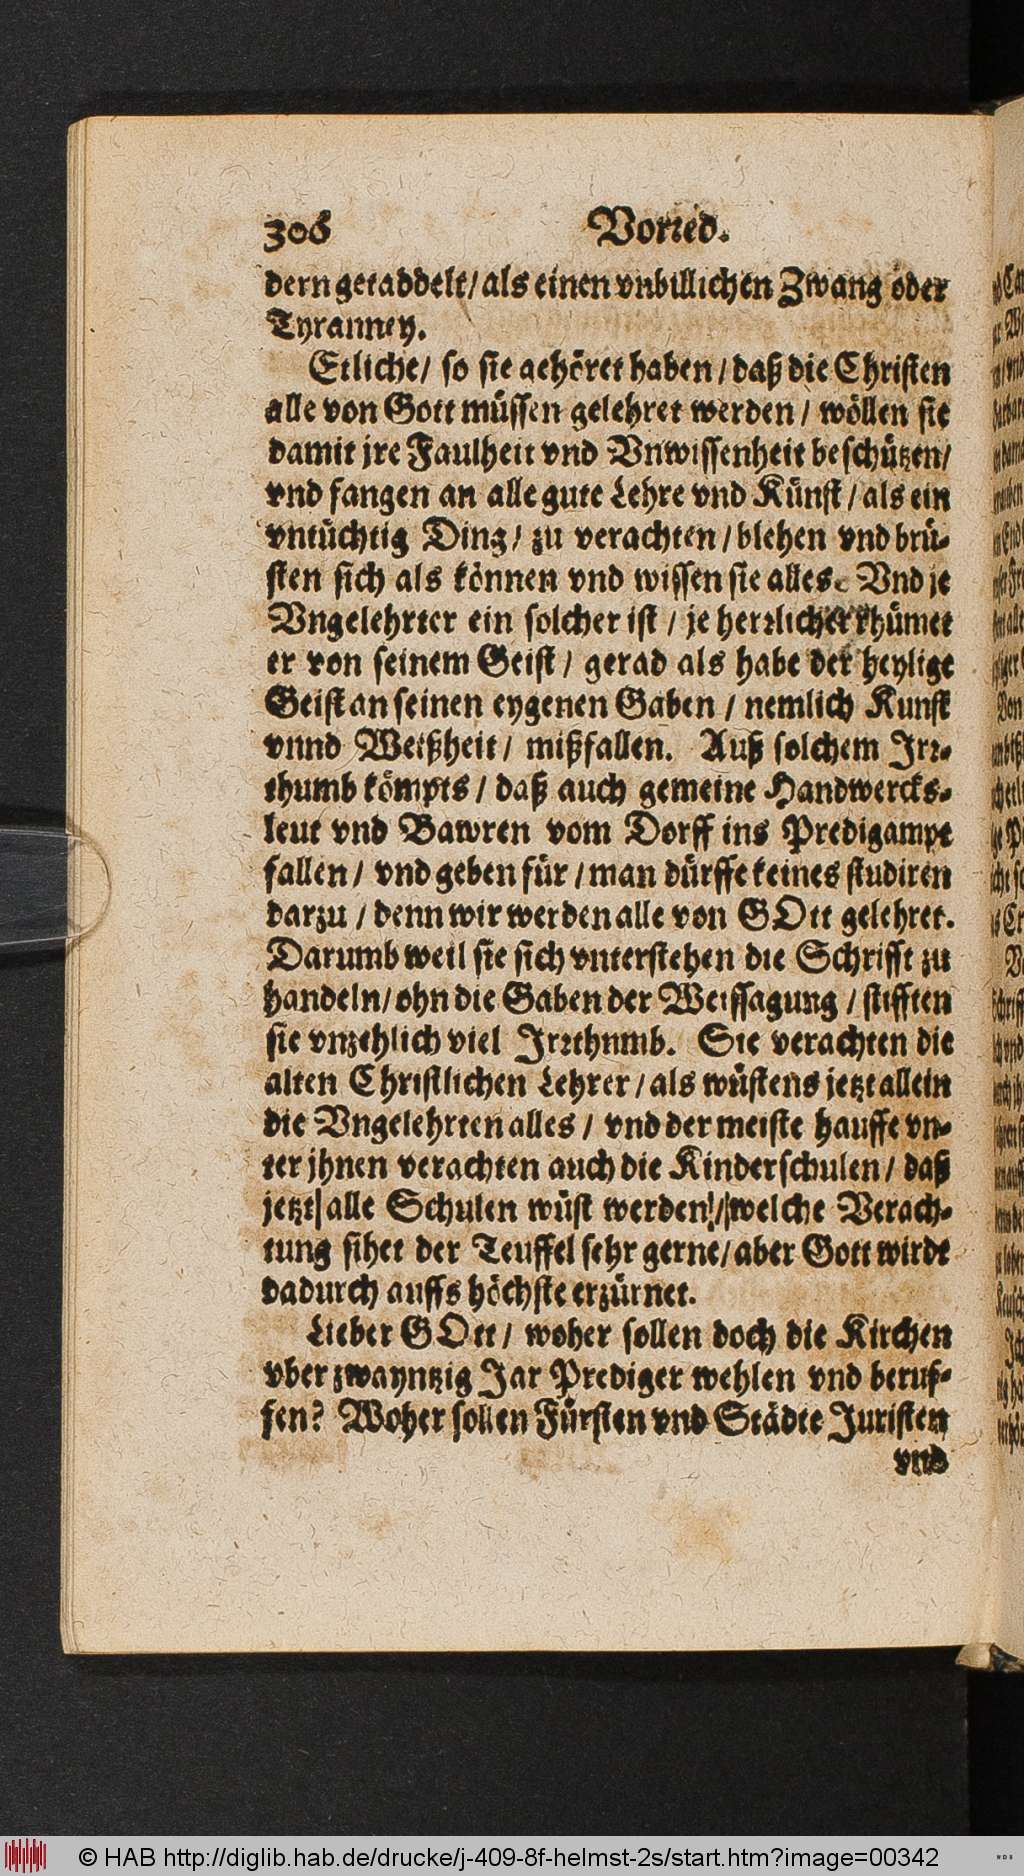 306 Vorred.
dern getaddelt/ als einen vnbillichen Zwang oder
Tyranney.
Etliche/ so sie gehöret haben/ daß die Christen
alle von Gott müssen gelehret werden/ wöllen sie
damit jre Faulheit vnd Vnwissenheit beschützen/
vnd fangen an alle gute Lehre vnd Künst/ als ein
vntüchtig Ding/ zu verachten/ blehen vnd brü-
sten sich als können vnd wissen sie alles. Vnd je
Vngelehrter ein solcher ist/ je herrlicher rhümet
er von seinem Geist/ gerad als habe der heylige
Geist an seinen eygenen Gaben/ nemlich Kunst
vnnd Weißheit/ mißfallen. Auß solchem Irr-
thumb kömpts/ daß auch gemeine Handwercks-
leut vnd Bawren vom Dorff ins Predigampt
fallen/ vnd geben für/ man dürffe keines studiren
darzu/ denn wir werden alle von GOtt gelehret.
Darumb weil sie sich vnterstehen die Schrifft zu
handeln/ ohn die Gaben der Weissagung/ stifften
sie vnzehlich viel Irrthnmb. Sie verachten die
alten Christlichen Lehrer/ als wüstens jetzt allein
die Vngelehrten alles/ vnd der meiste hauffe vn-
ter jhnen verachten auch die Kinderschulen/ daß
jetzt alle Schulen wüst werden/ welche Verach-
tung sihet der Teuffel sehr gerne/ aber Gott wirdt
dadurch auffs höchste erzürnet.
Lieber GOtt/ woher sollen doch die Kirchen
vber zwayntzig Jar Prediger wehlen vnd beruf-
fen? Woher sollen Fürsten vnd Städte Juristen
vnd
© HAB http://diglib.hab.de/drucke/j-409-8f-helmst-2s/start.htm?image=00342